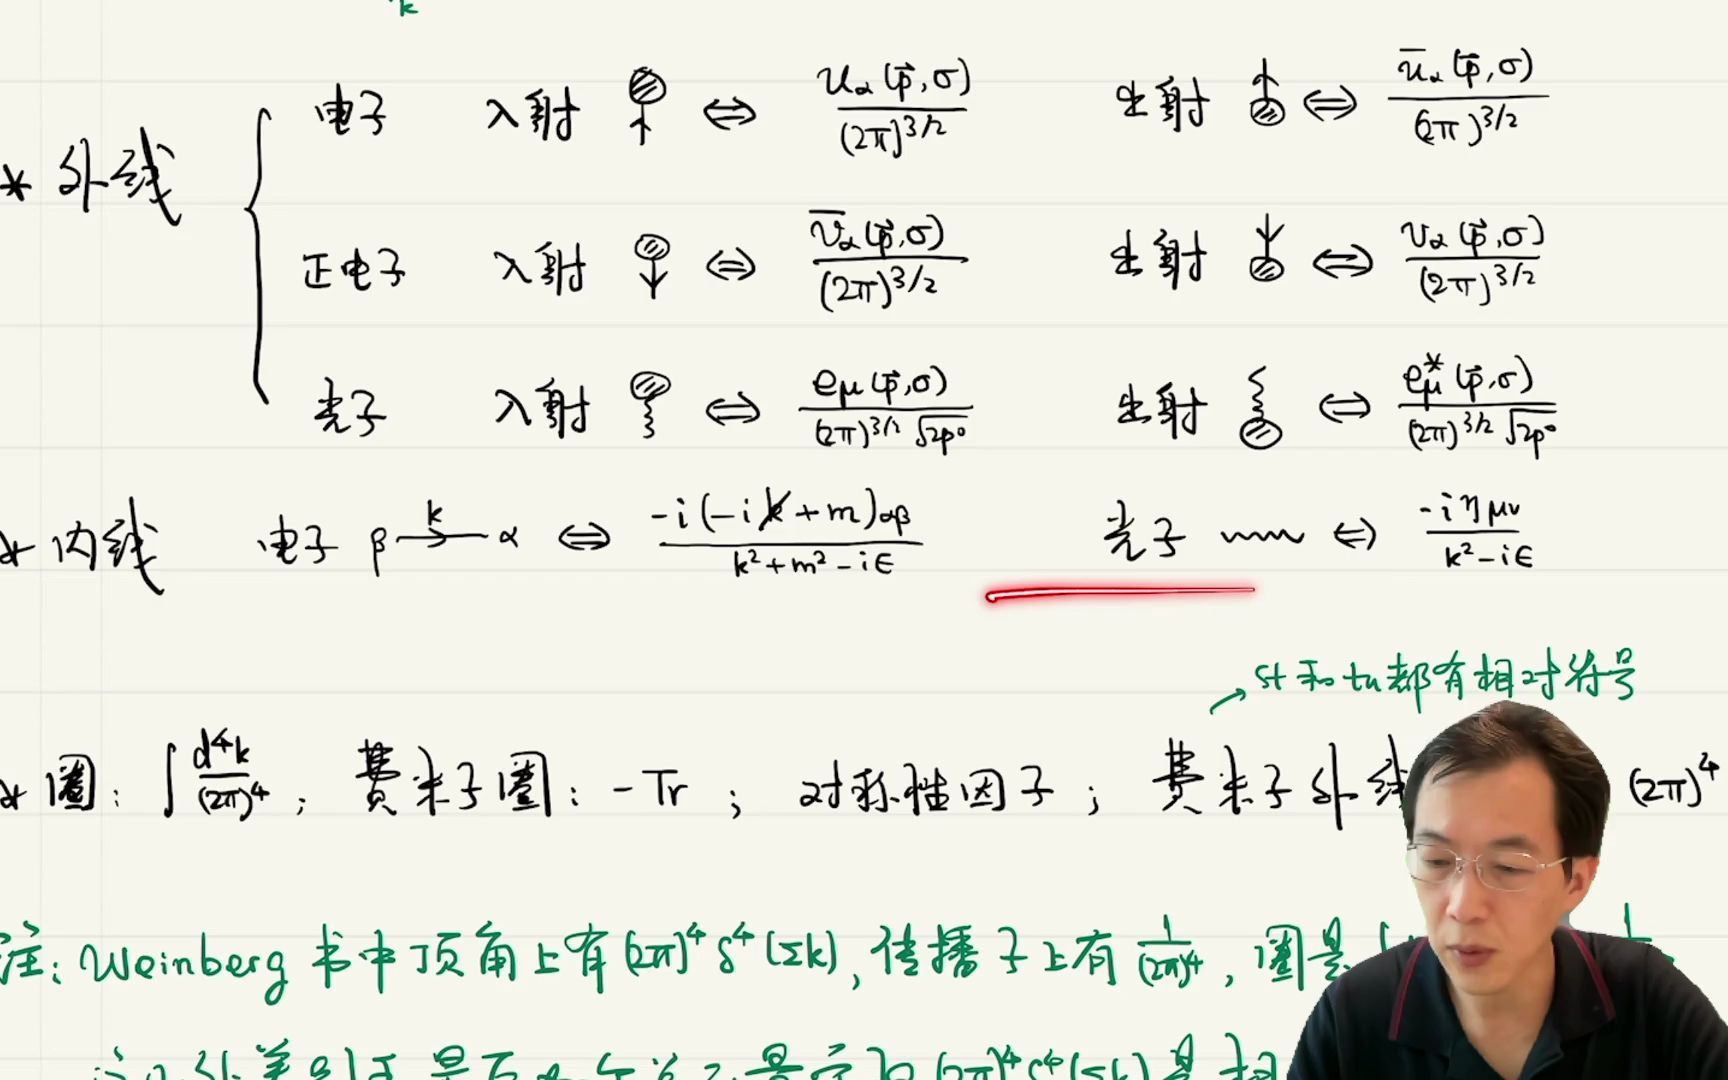 k
电子 入射 ⇔ u_α(p⃗,σ)/(2π)^{3/2} 出射 ⇔ ū_α(p⃗,σ)/(2π)^{3/2}
* 外线
正电子 入射 ⇔ v̄_α(p⃗,σ)/(2π)^{3/2} 出射 ⇔ v_α(p⃗,σ)/(2π)^{3/2}
光子 入射 ⇔ e_μ(p⃗,σ)/((2π)^{3/2}√2p⁰) 出射 ⇔ e*_μ(p⃗,σ)/((2π)^{3/2}√2p⁰)
* 内线 电子 β k α ⇔ -i(-ik̸+m)_{αβ}/(k²+m²-iϵ) 光子 ⇔ -iη_{μν}/(k²-iϵ)
st和tu都有相对符号
* 圈: ∫d⁴k/(2π)⁴; 费米子圈: -Tr; 对称性因子; 费米子外线 (2π)⁴
注: Weinberg 书中顶角上有(2π)⁴δ⁴(Σk), 传播子上有 1/(2π)⁴, 圈是